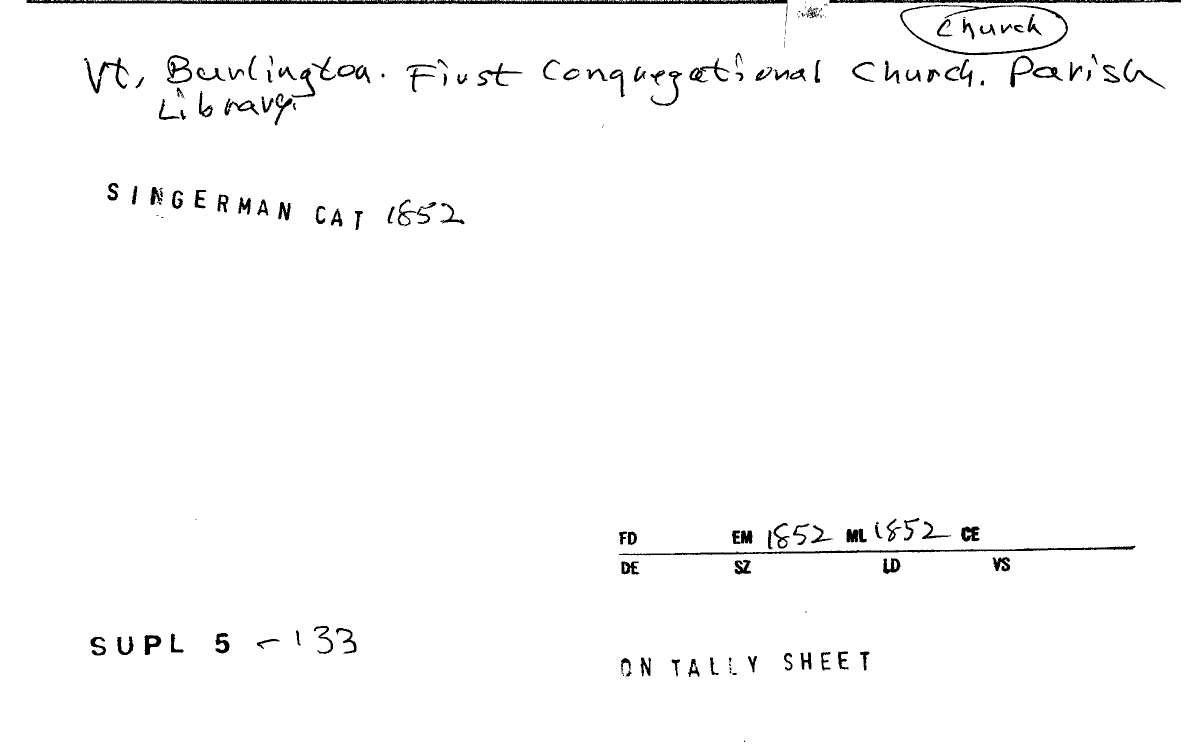 Church
Vt, Burlington. First Congregational Church. Parish
Library.
SINGERMAN CAT 1852
FD EM 1852 ML 1852 CE
DE SZ LD VS
SUPL 5 - 133
ON TALLY SHEET